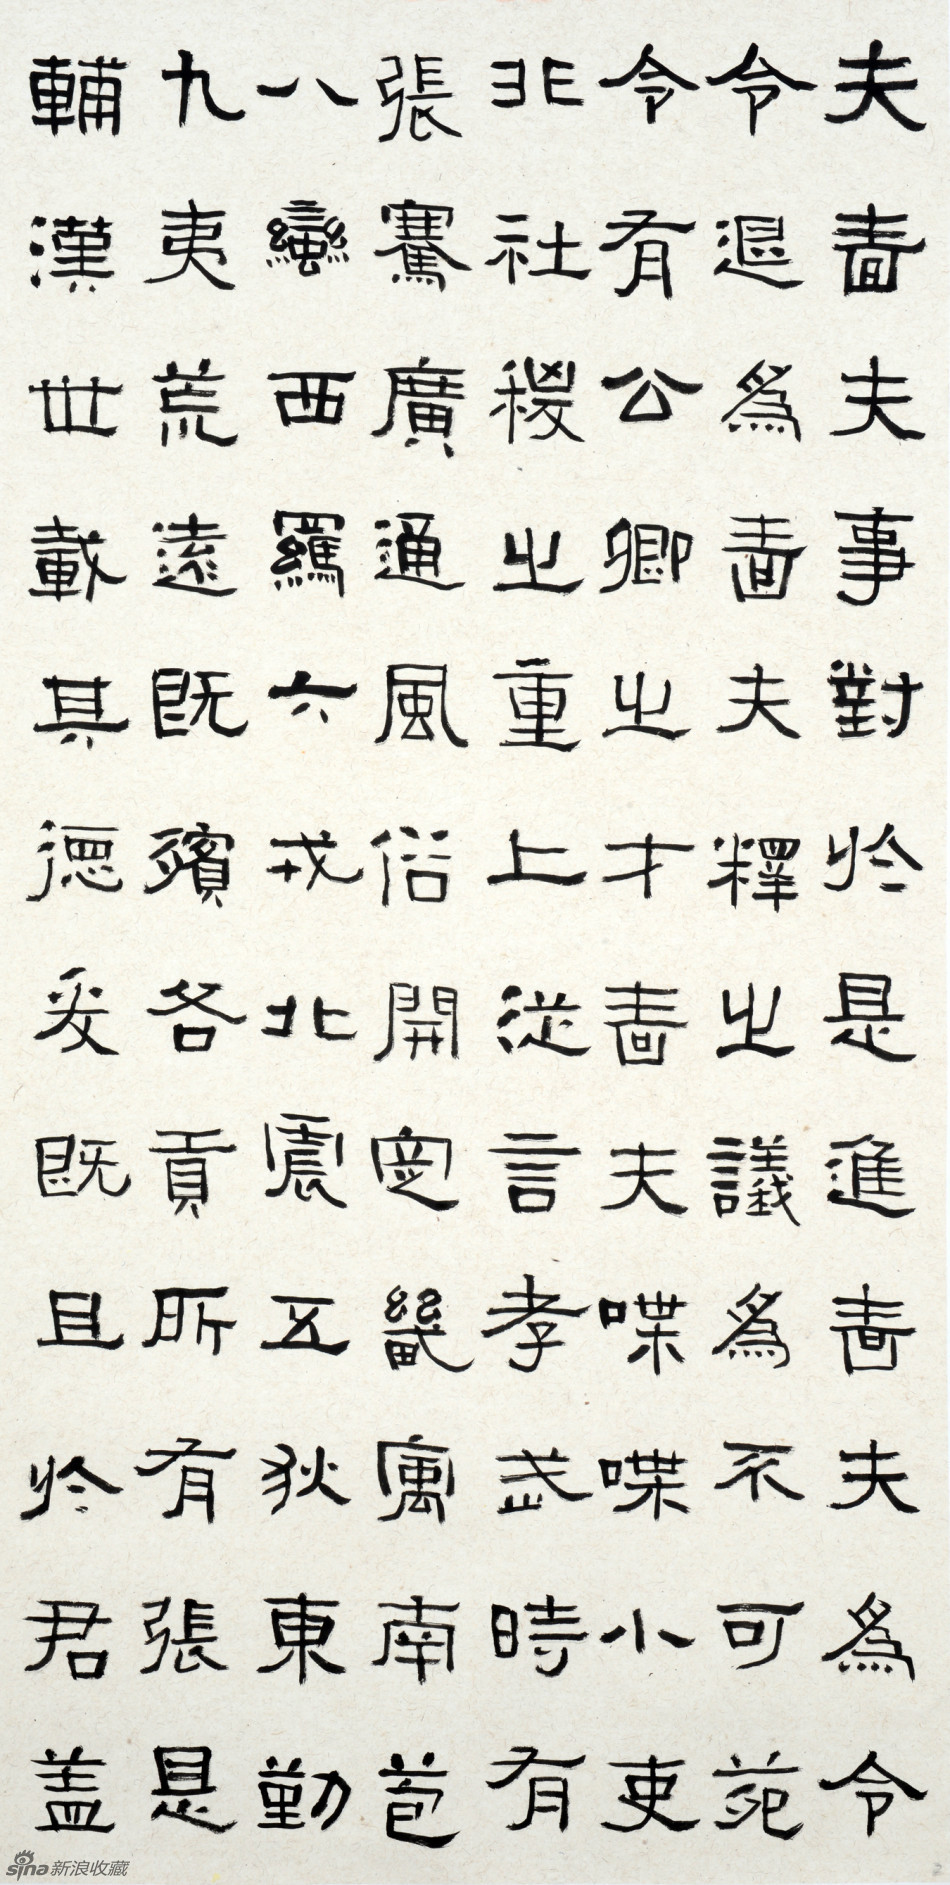 夫嗇夫事對於是進嗇夫爲令
令退爲嗇夫釋之議爲不可苑
令有公卿之才嗇夫喋喋小吏
非社稷之重上從言孝武時有
張騫廣通風俗開定畿寓南苞
八蠻西羈六戎北震五狄東勤
九夷荒遠既殯各貢所有張是
輔漢世載其德爰既且於君蓋
sina新浪收藏